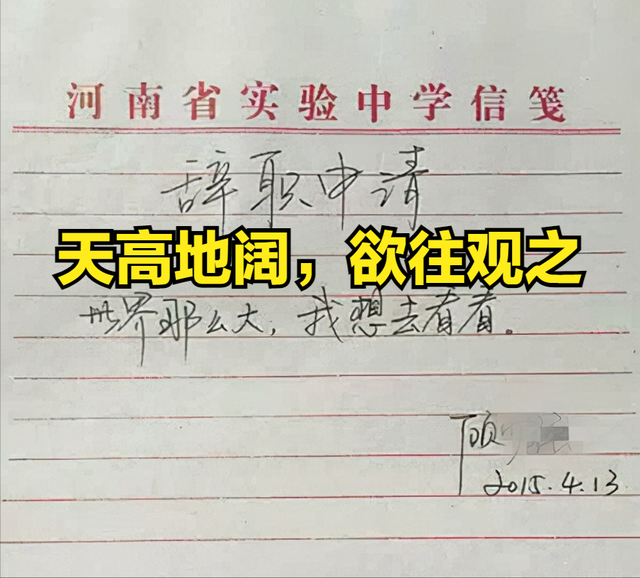 河南省实验中学信笺
辞职申请
天高地阔，欲往观之
世界那么大，我想去看看。
顾
2015.4.13